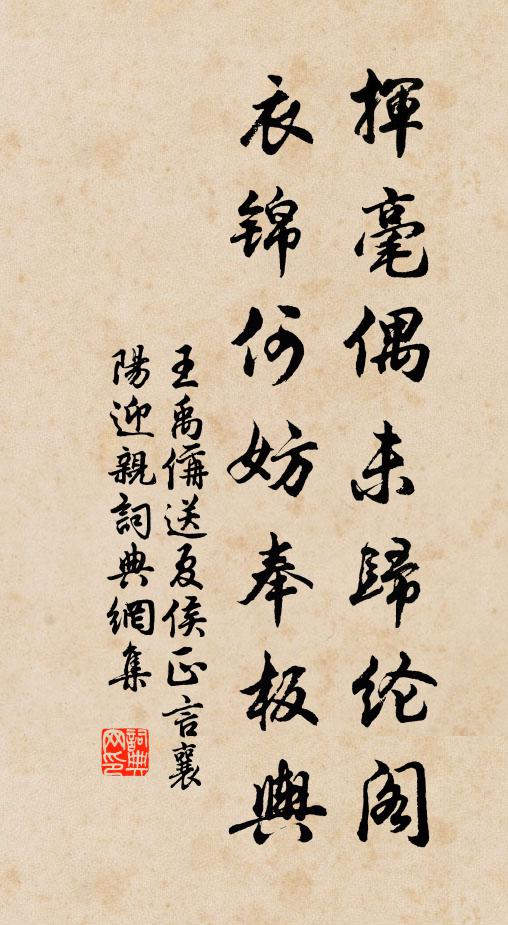 揮毫偶未歸纶阁
衣锦何妨奉板輿
王禹偁送夏侯正言襄
陽迎親詞典網集
詞典网印